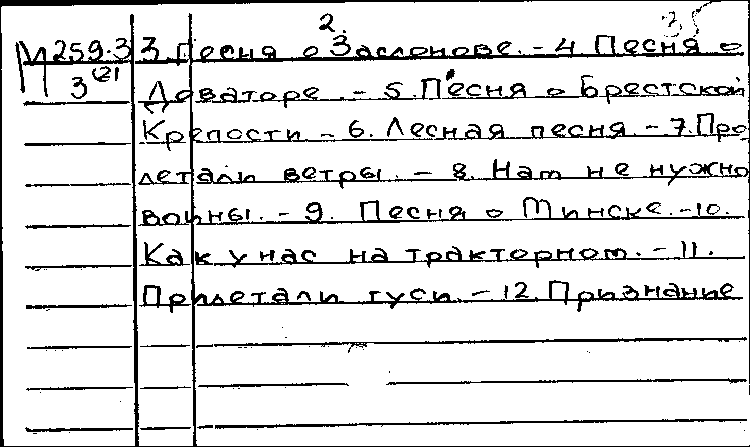 2. 3
М259.3 3. Песня о Заслонове. - 4. Песня о
3(2) Доваторе. - 5. Песня о Брестской
Крепости - 6. Лесная песня. - 7. Про
летали ветры. - 8. Нам не нужно
войны. - 9. Песня о Минске. - 10.
Как у нас на тракторном. - 11.
Прилетали гуси. - 12. Признание